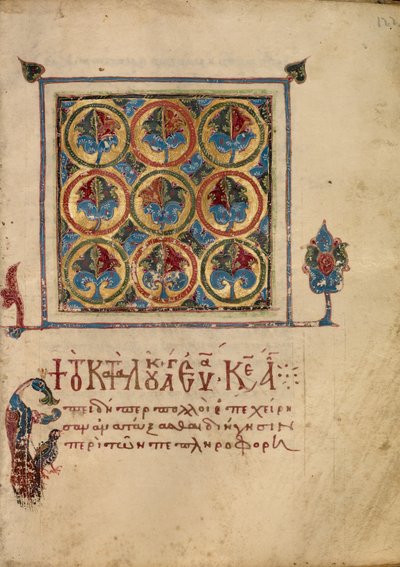 + ΤΟ ΚΑΤΑ ΛΟΥΚ ΑΓ ΕΥΑ ΚΕ Α
Επειδήπερ πολλοὶ ἐπεχείρη
σαν ἀνατάξασθαι διήγησιν
περὶ τῶν πεπληροφορη